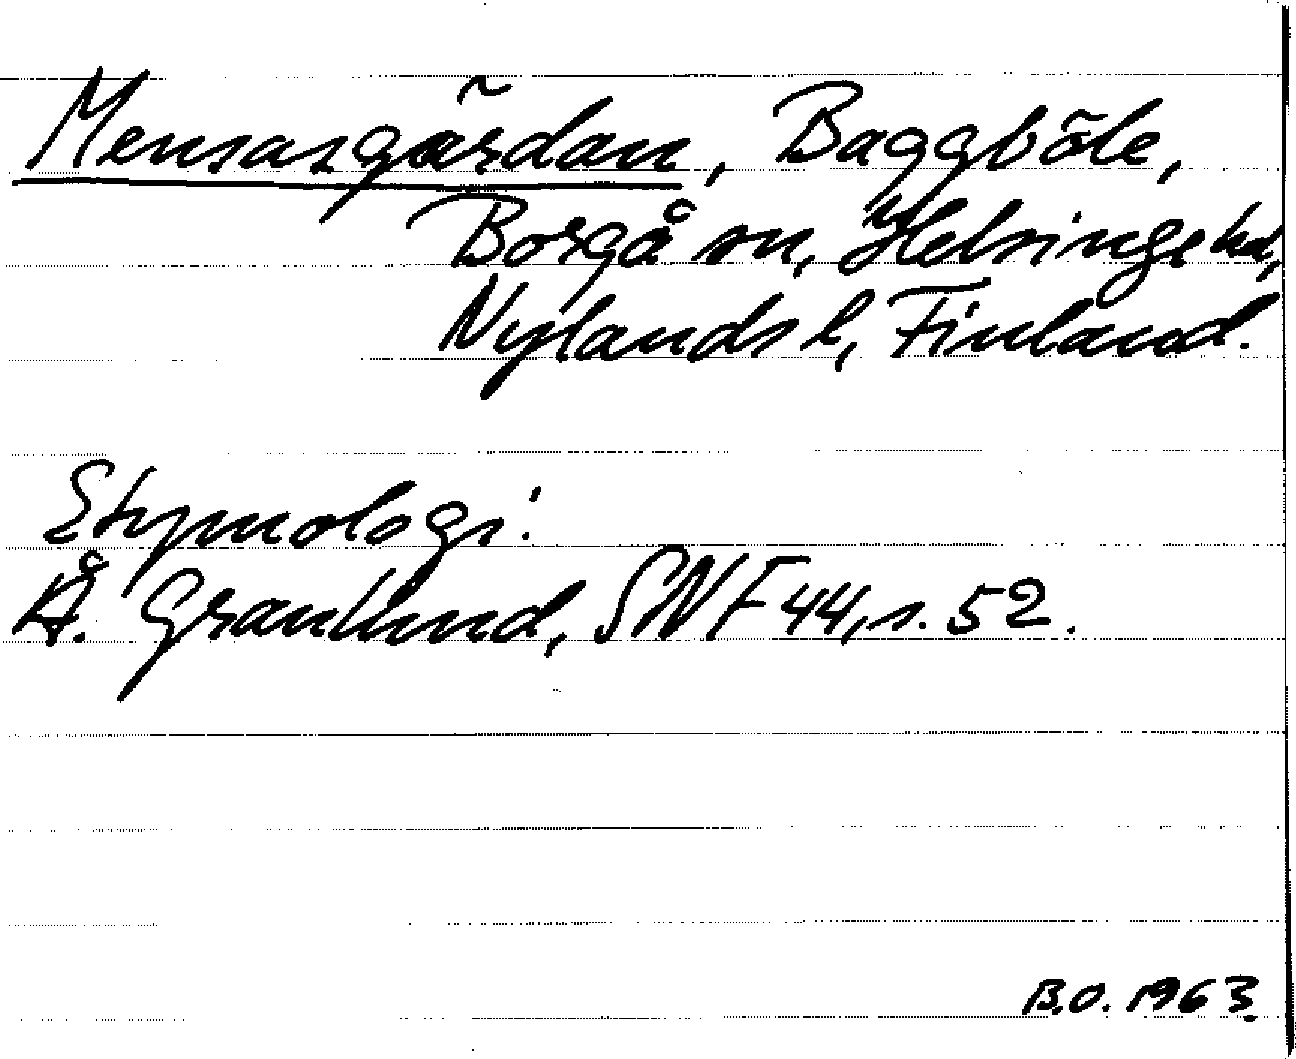 Mensasgärdan, Baggböle,
Borgå sn, Helsinge hd,
Nylands l, Finland.
Etymologi:
Å. Granlund, SNF 44, s. 52.
B.O. 1963.